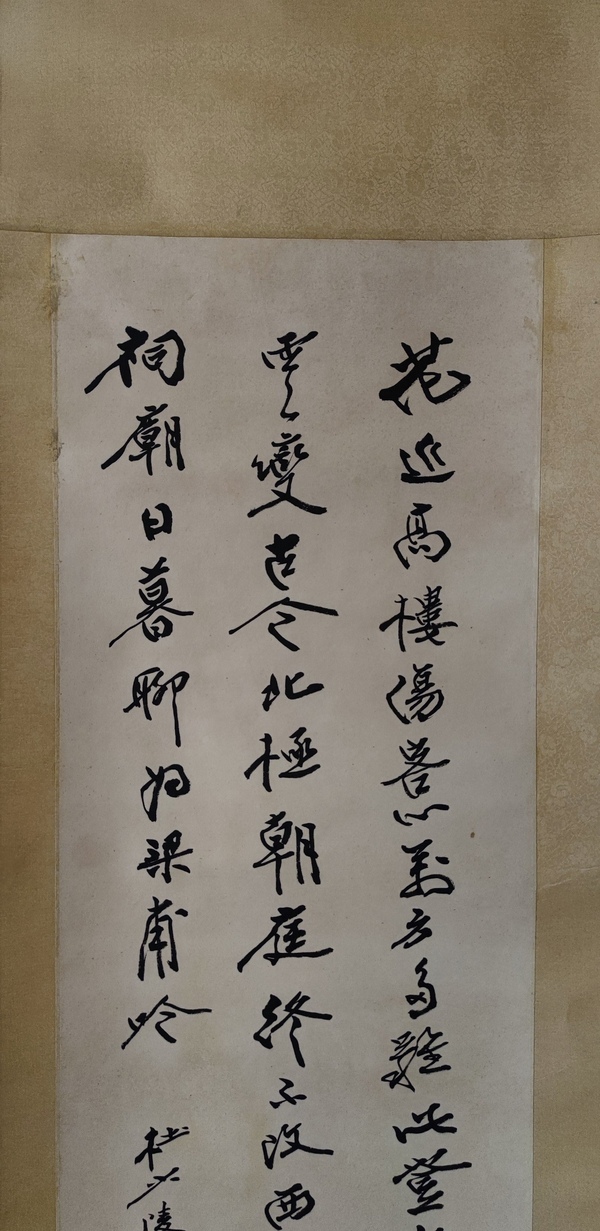 花近高樓傷客心萬方多難此登
雲變古今北極朝庭終不改西
祠廟日暮聊為梁甫吟
杜少陵